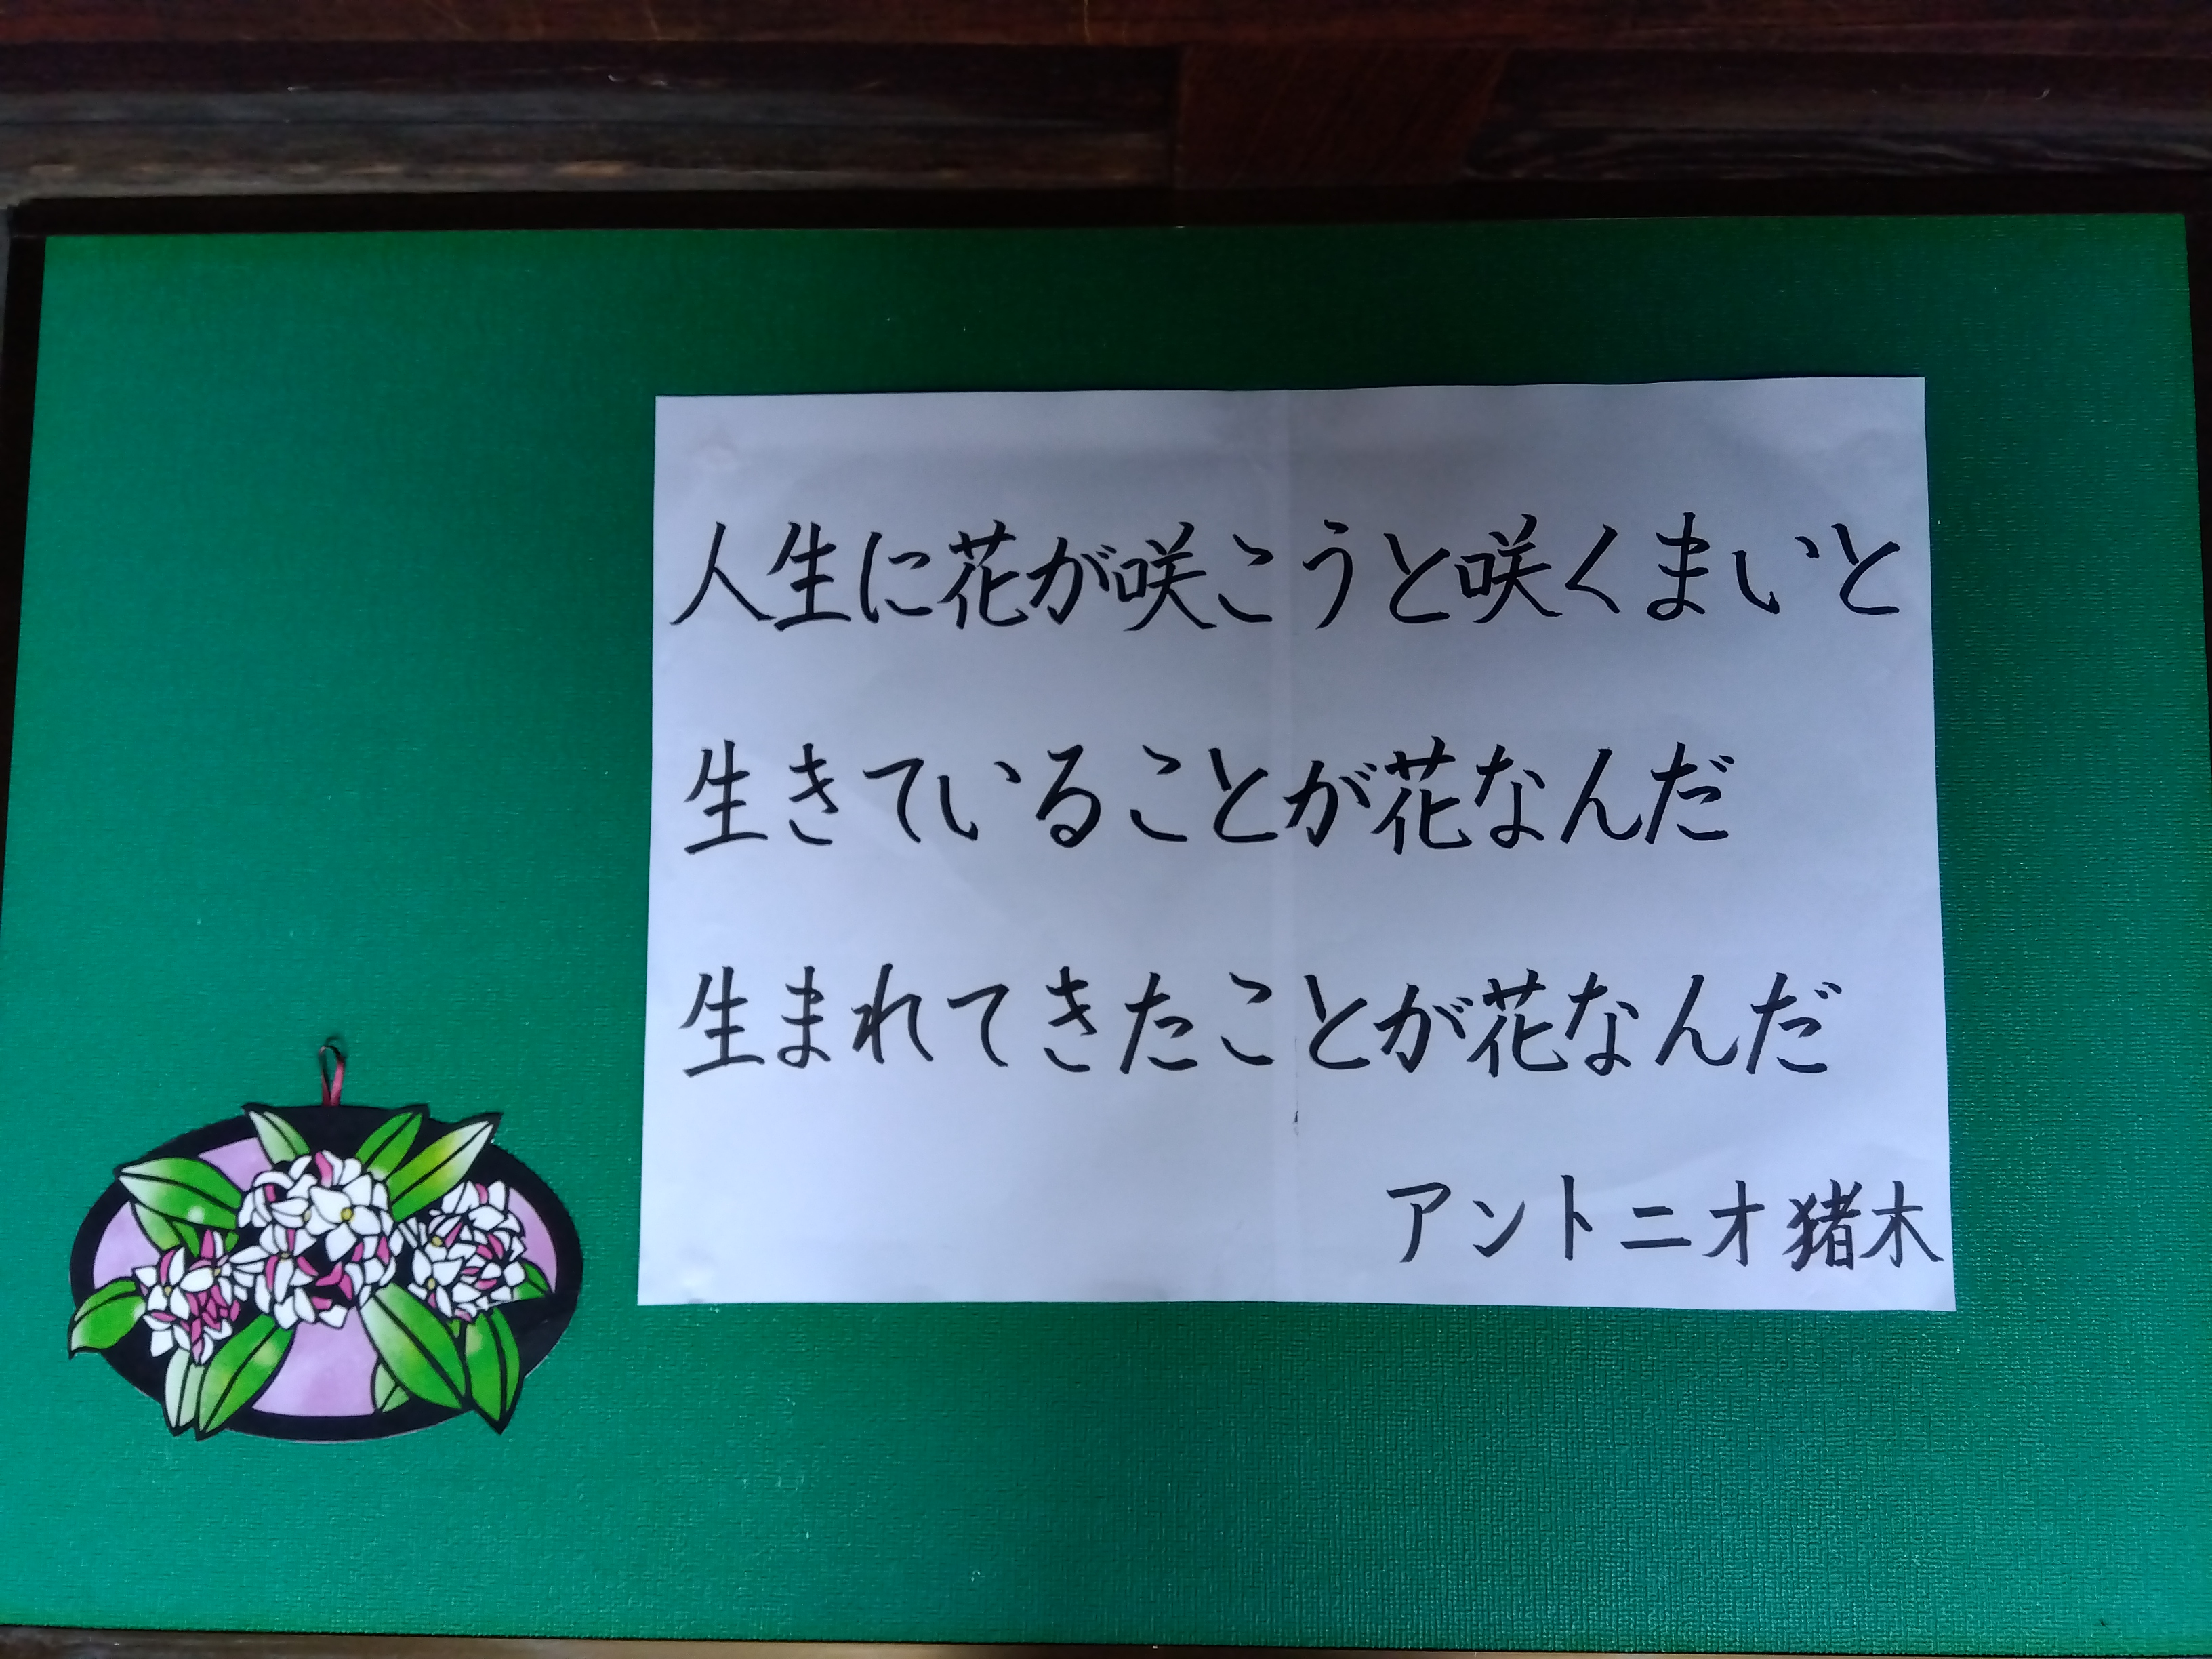 人生に花が咲こうと咲くまいと
生きていることが花なんだ
生まれてきたことが花なんだ
アントニオ猪木